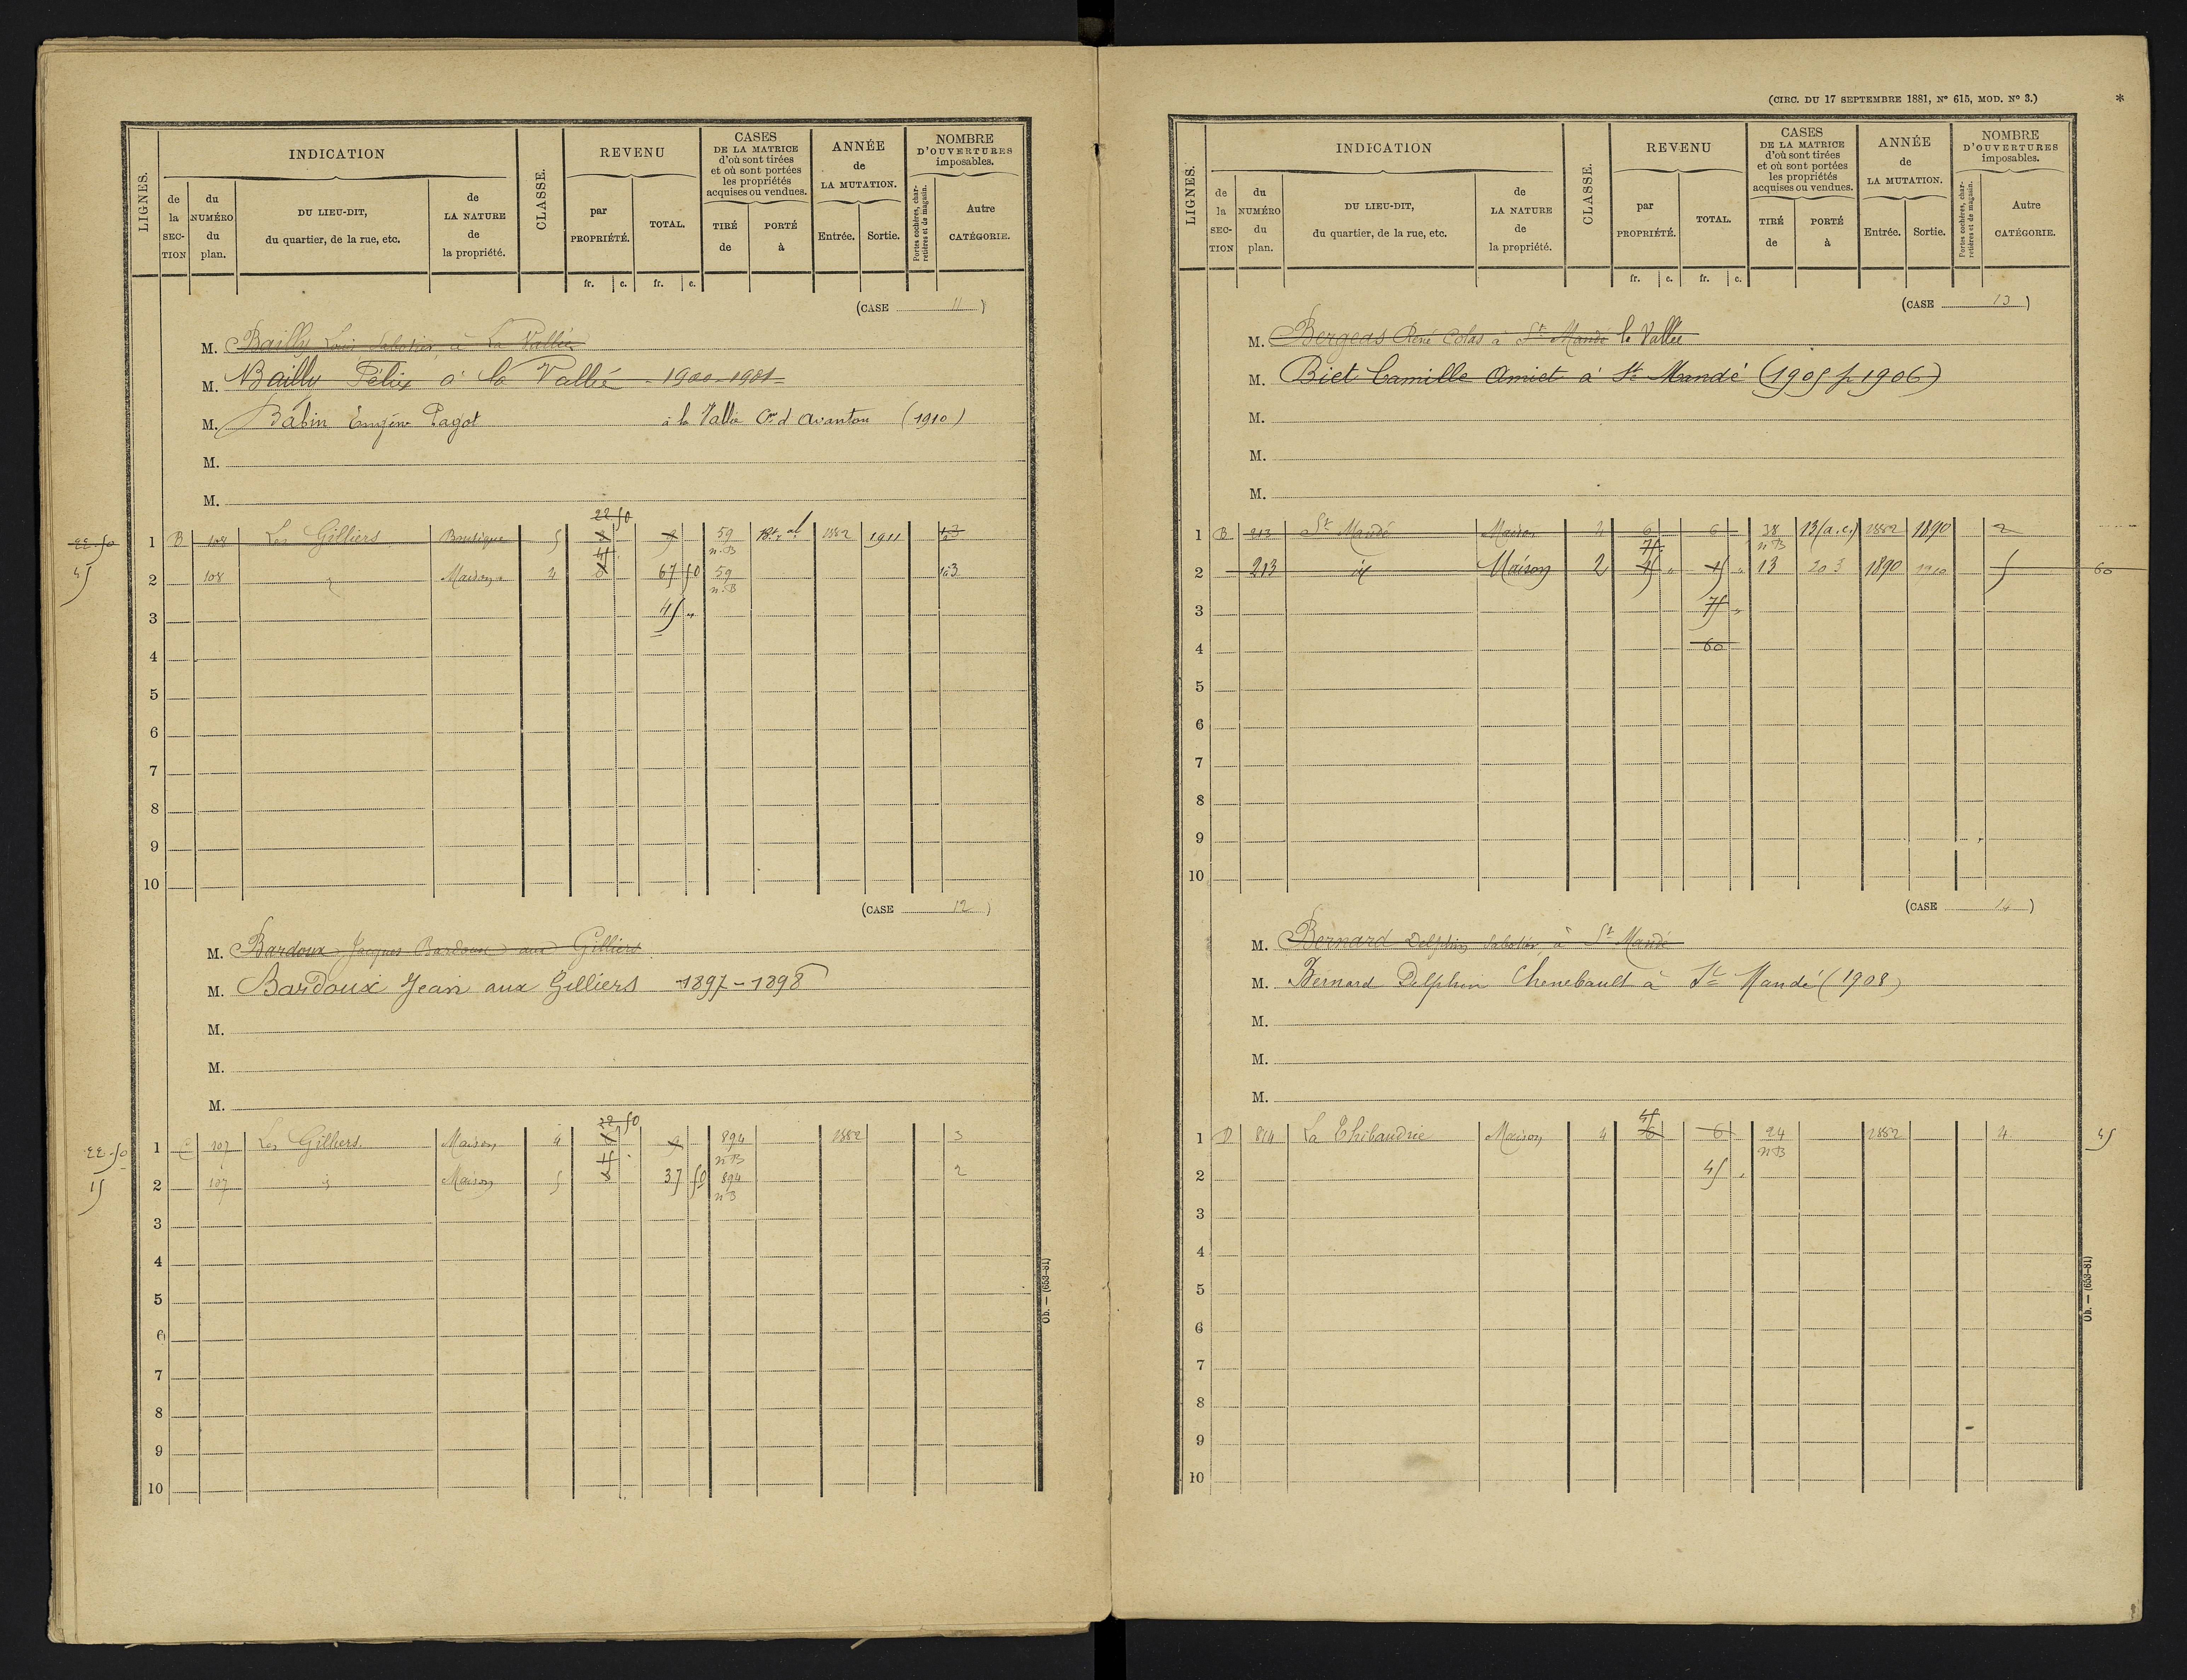 LIGNES.
INDICATION
de la SECTION
du NUMÉRO du plan.
DU LIEU-DIT, du quartier, de la rue, etc.
de LA NATURE de la propriété.
CLASSE.
REVENU
par PROPRIÉTÉ.
TOTAL.
CASES DE LA MATRICE d'où sont tirées et où sont portées les propriétés acquises ou vendues.
TIRÉ de
PORTÉ à
ANNÉE de LA MUTATION.
Entrée.
Sortie.
NOMBRE D'OUVERTURES imposables.
Portes cochères, charretières et de magasin.
Autre CATÉGORIE.
fr. c. fr. c.
(CASE 11)
M. Bailly Louis Sabotier à La Vallée
M. Bailly Félix à la Vallée - 1900-1901-
M. Babin Eugène Pagot à la Vallée Cne d'Avanton (1910)
M.
M.
22 50
22.50 1 B 108 Les Gilliers Boutique 5 9 59 1882 1911
n.B
45 2 108 Maison 4 67 50 59 3
n.B
3 45 "
4
5
6
7
8
9
10
(CASE 12)
M. Bardoux Jacques Bardoux aux Gilliers
M. Bardoux Jean aux Gilliers 1897-1898
M.
M.
M.
22 50
22.50 1 C 107 Les Gilliers Maison 4 9 894 1882 3
15 nB
15 2 107 id Maison 5 37 50 894 2
nB
3
4
5
6
7
8
9
10
Ob. — (653-81)
(CIRC. DU 17 SEPTEMBRE 1881, N° 615, MOD. N° 3.)
*
LIGNES.
INDICATION
de la SECTION
du NUMÉRO du plan.
DU LIEU-DIT, du quartier, de la rue, etc.
de LA NATURE de la propriété.
CLASSE.
REVENU
par PROPRIÉTÉ.
TOTAL.
CASES DE LA MATRICE d'où sont tirées et où sont portées les propriétés acquises ou vendues.
TIRÉ de
PORTÉ à
ANNÉE de LA MUTATION.
Entrée.
Sortie.
NOMBRE D'OUVERTURES imposables.
Portes cochères, charretières et de magasin.
Autre CATÉGORIE.
fr. c. fr. c.
(CASE 13)
M. Bergeas René Colas à St Mandé la Vallée
M. Biet Camille Amiet à St Mandé (1905 p. 1906)
M.
M.
M.
1 B 213 St Mandé Maison 4 6 6 38 13 (a.c.) 1882 1890 2
75 nB
2 213 id Maison 2 45 " 45 " 13 203 1890 1910 5 60
3 75 "
4 60
5
6
7
8
9
10
(CASE 14)
M. Bernard Delphin Sabotier, à St Mandé
M. Bernard Delphin Chenebault à St Mandé (1908)
M.
M.
M.
45
1 D 814 La Thibaudrie Maison 4 6 6 24 1882 4 45
nB
2 45 "
3
4
5
6
7
8
9
10
Ob. — (653-81)